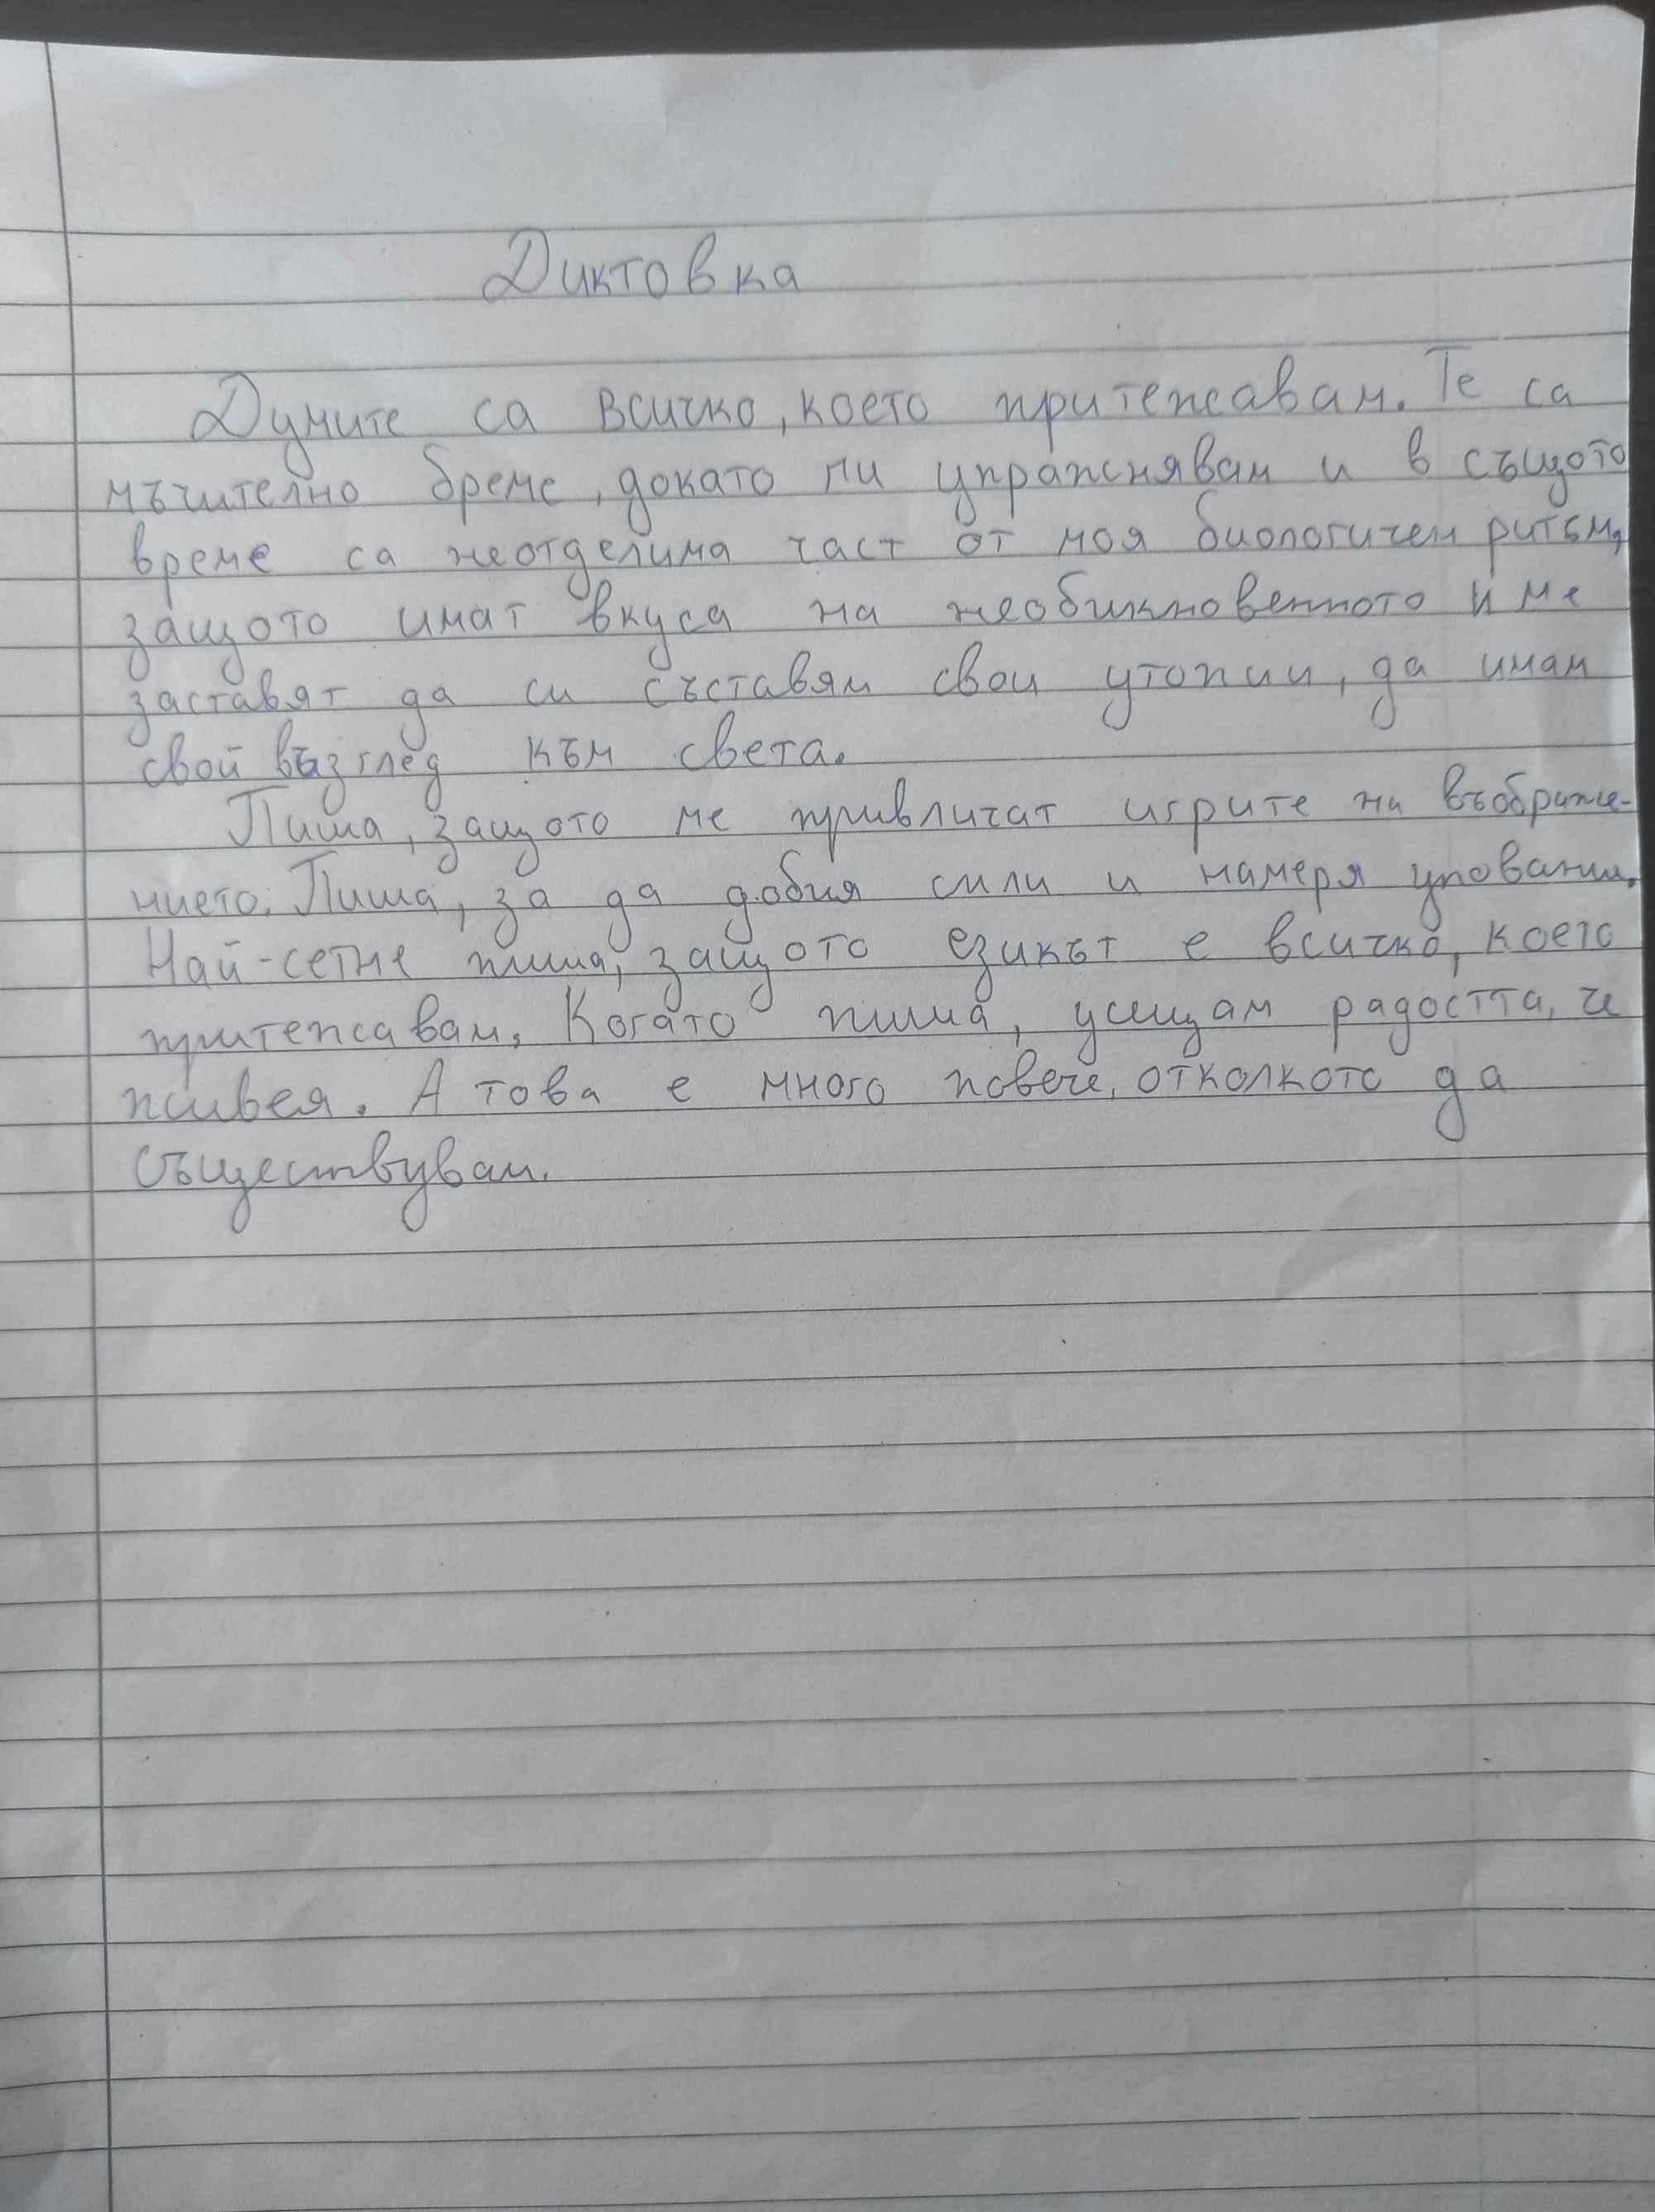 Диктовка
Думите са всичко, което притежавам. Те са
мъчително бреме, докато ги упражнявам и в същото
време са неотделима част от моя биологичен ритъм,
защото имат вкуса на необикновенното и ме
заставят да си съставям свои утопии, да имам
свой възглед към света.
Пиша, защото ме привличат игрите на въображе-
нието. Пиша, за да добия сили и намеря упование.
Най-сетне пиша, защото езикът е всичко, което
притежавам. Когато пиша, усещам радостта, че
живея. А това е много повече, отколкото да
съществувам.